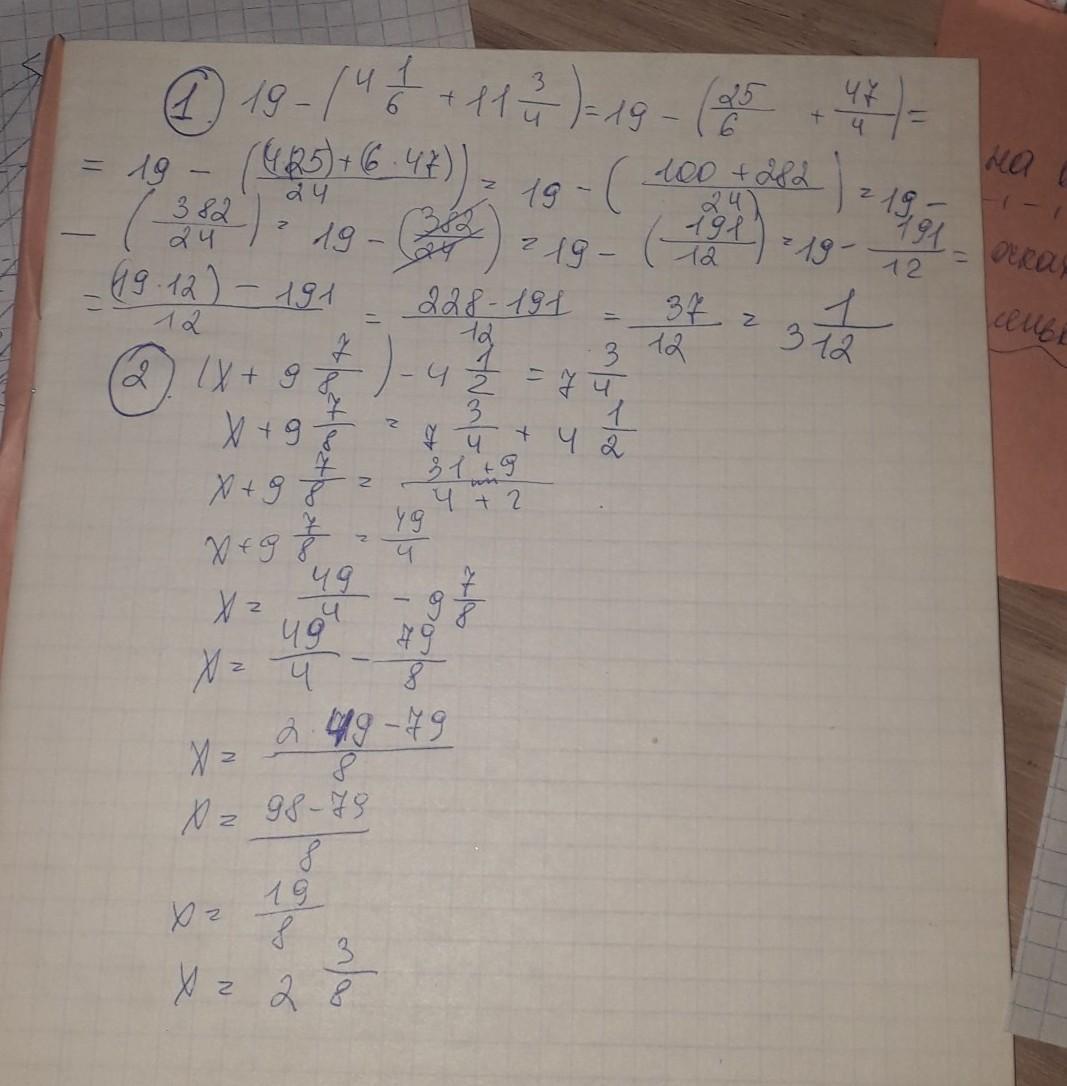 1. 19 - (4 1/6 + 11 3/4) = 19 - (25/6 + 47/4) =
= 19 - ((4·25) + (6·47))/24) = 19 - (100 + 282/24) = 19 -
- (382/24) = 19 - (382/24) = 19 - (191/12) = 19 - 191/12 =
= (19·12) - 191/12 = 228 - 191/12 = 37/12 = 3 1/12
2. (x + 9 7/8) - 4 1/2 = 7 3/4
x + 9 7/8 = 7 3/4 + 4 1/2
x + 9 7/8 = 31 + 9/4 + 2
x + 9 7/8 = 49/4
x = 49/4 - 9 7/8
x = 49/4 - 79/8
x = 2·49 - 79/8
x = 98 - 79/8
x = 19/8
x = 2 3/8
на